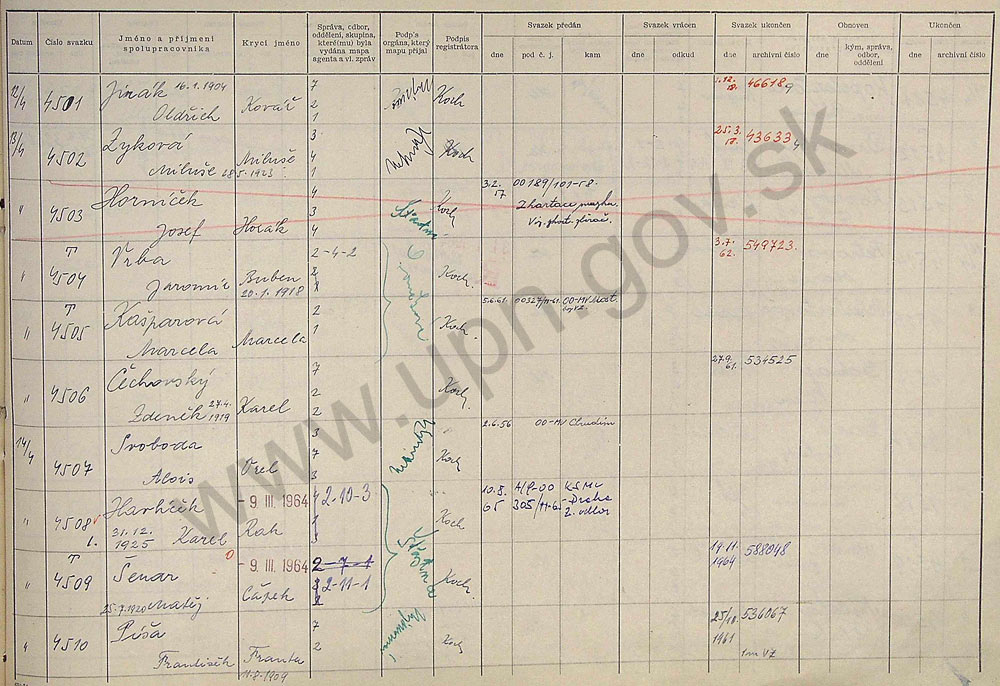 Datum
Číslo svazku
Jméno a příjmení
spolupracovníka
Krycí jméno
Správa, odbor,
oddělení, skupina,
které(mu) byla
vydána mapa
agenta a vl. zpráv
Podpis
orgána, který
mapu přijal
Podpis
registrátora
Svazek předán
dne
pod č. j.
kam
Svazek vrácen
dne
odkud
Svazek ukončen
dne
archivní číslo
Obnoven
dne
kým, správa,
odbor,
oddělení
Ukončen
dne
archivní číslo
12/4 4501 Jinák 16.1.1904 7 Koch 46618
Oldřich Kovář 2
1
13/4 4502 Zyková 3 Koch 25.3. 43633
Miluše 28.5.1923 Miluše 4
1
" 4503 Horníček 4 3.2. 57 00189/101-58
3
Josef Horák 4
T
" 4504 Vrba 2-4-2 Koch 3.7. 62. 549723
Jaromír Buben
20.1.1918
T
" 4505 Kašparová 2 Koch 5.6.61 00-MV Most
Marcela Marcela 1
" 4506 Čechovský 7 Koch 27.9. 61. 534525
Zdeněk 27.4. 1919 Karel 2
2
14/4 4507 Svoboda 3 Koch 2.6.56 00-MV Chrudim
Alois 7
3
" 4508 Havlíček - 9 III. 1964 2-10-3 Koch 10.8. 65 KSMV
Praha
2. odbor
1. 31.12. 1925 Karel Rak
T
" 4509 Šenar - 9 III. 1964 2-7-1 Koch 19.11. 1964 588048
25.7.1920 Matěj Čápek 2-11-1
" 4510 Píša 7 Koch 25/10. 1961 536067
František Franta 2
11.8.1909
www.upn.gov.sk